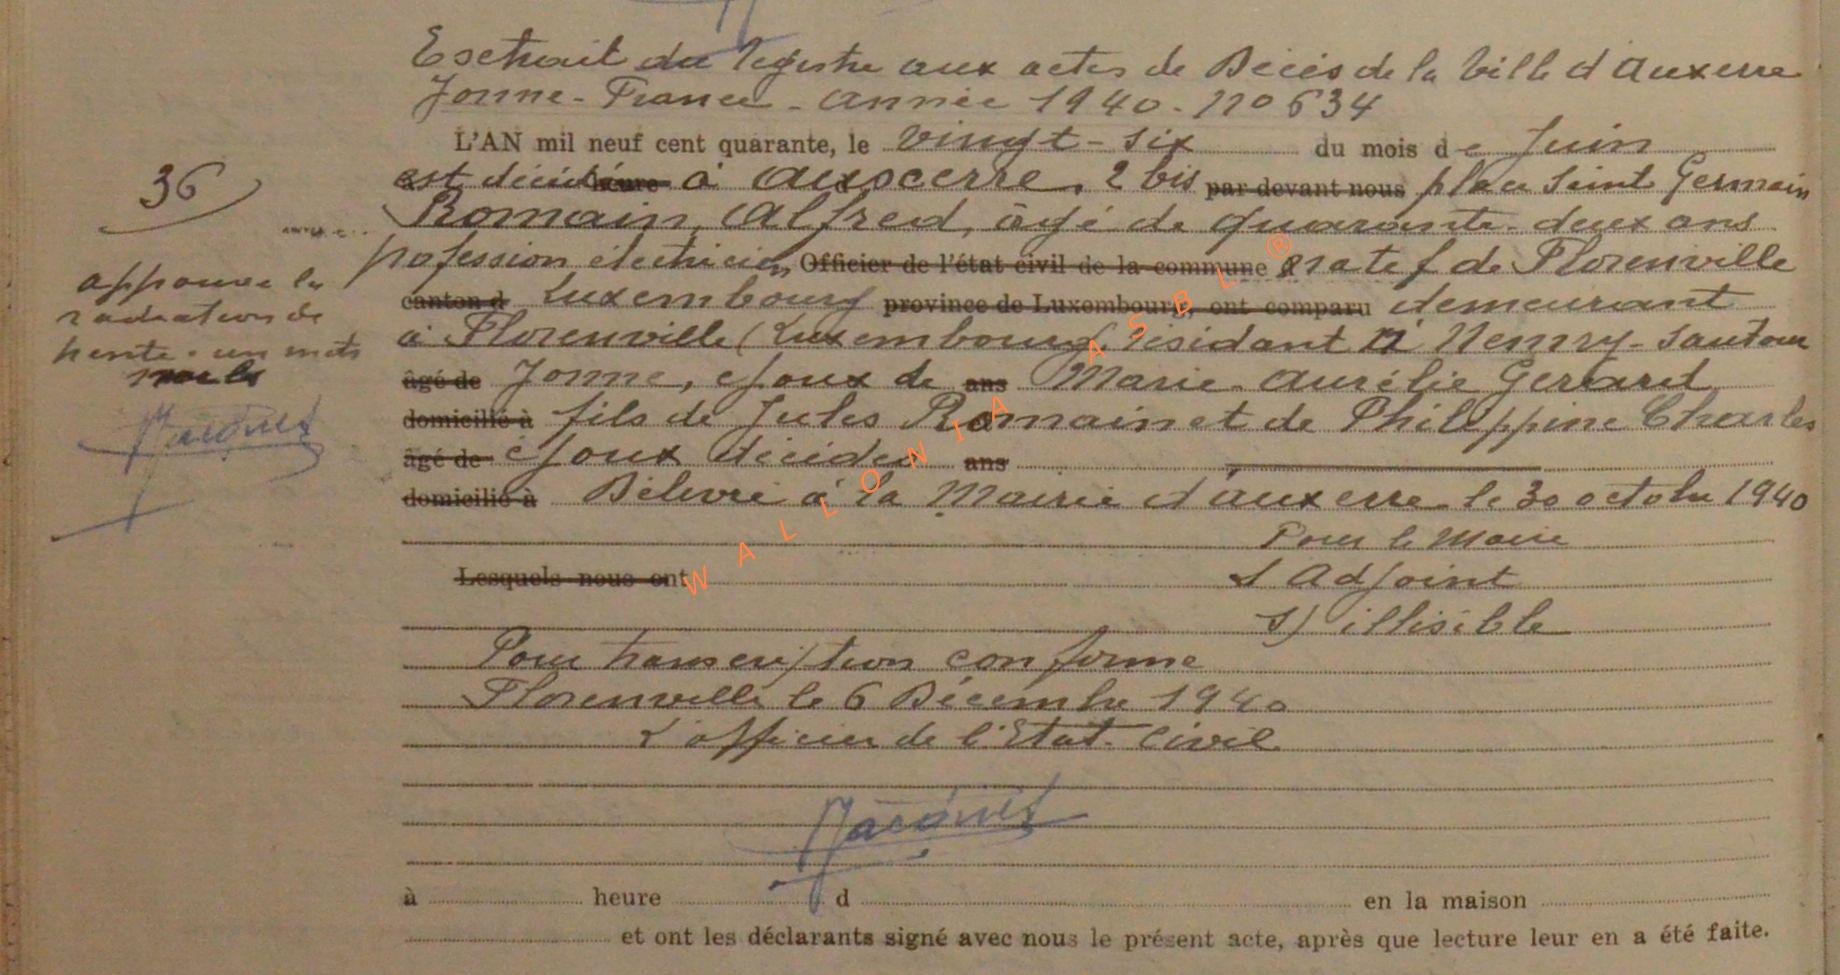 Extrait du registre aux actes de Décès de la Ville d'Auxerre
Yonne - France - Année 1940 - no 634
L'AN mil neuf cent quarante, le vingt-six du mois de Juin
36
est décédé heure à Auxerre, 2 bis par devant nous place Saint Germain
Romain, Alfred, âgé de quarante-deux ans
profession électricien Officier de l'état civil de la commune natif de Florenville
canton d Luxembourg province de Luxembourg, ont comparu demeurant
à Florenville (Luxembourg) résidant à Hemry-Sautour
âgé de Yonne, époux de ans Marie-Aurélie Gerard
domicilié à fils de Jules Romain et de Philippine Charles
âgé de époux décédés ans
domicilié à Délivré à la Mairie d'Auxerre le 30 octobre 1940
Pour le Maire
Lesquels nous ont L'Adjoint
s) illisible
Pour transcription conforme
Florenville le 6 Décembre 1940
L'officier de l'Etat-Civil
Jacques
approuvé la
radiation de
trente-un mots
nuls
Jacques
à heure d en la maison
et ont les déclarants signé avec nous le présent acte, après que lecture leur en a été faite.
WALLONIA ASBL ®